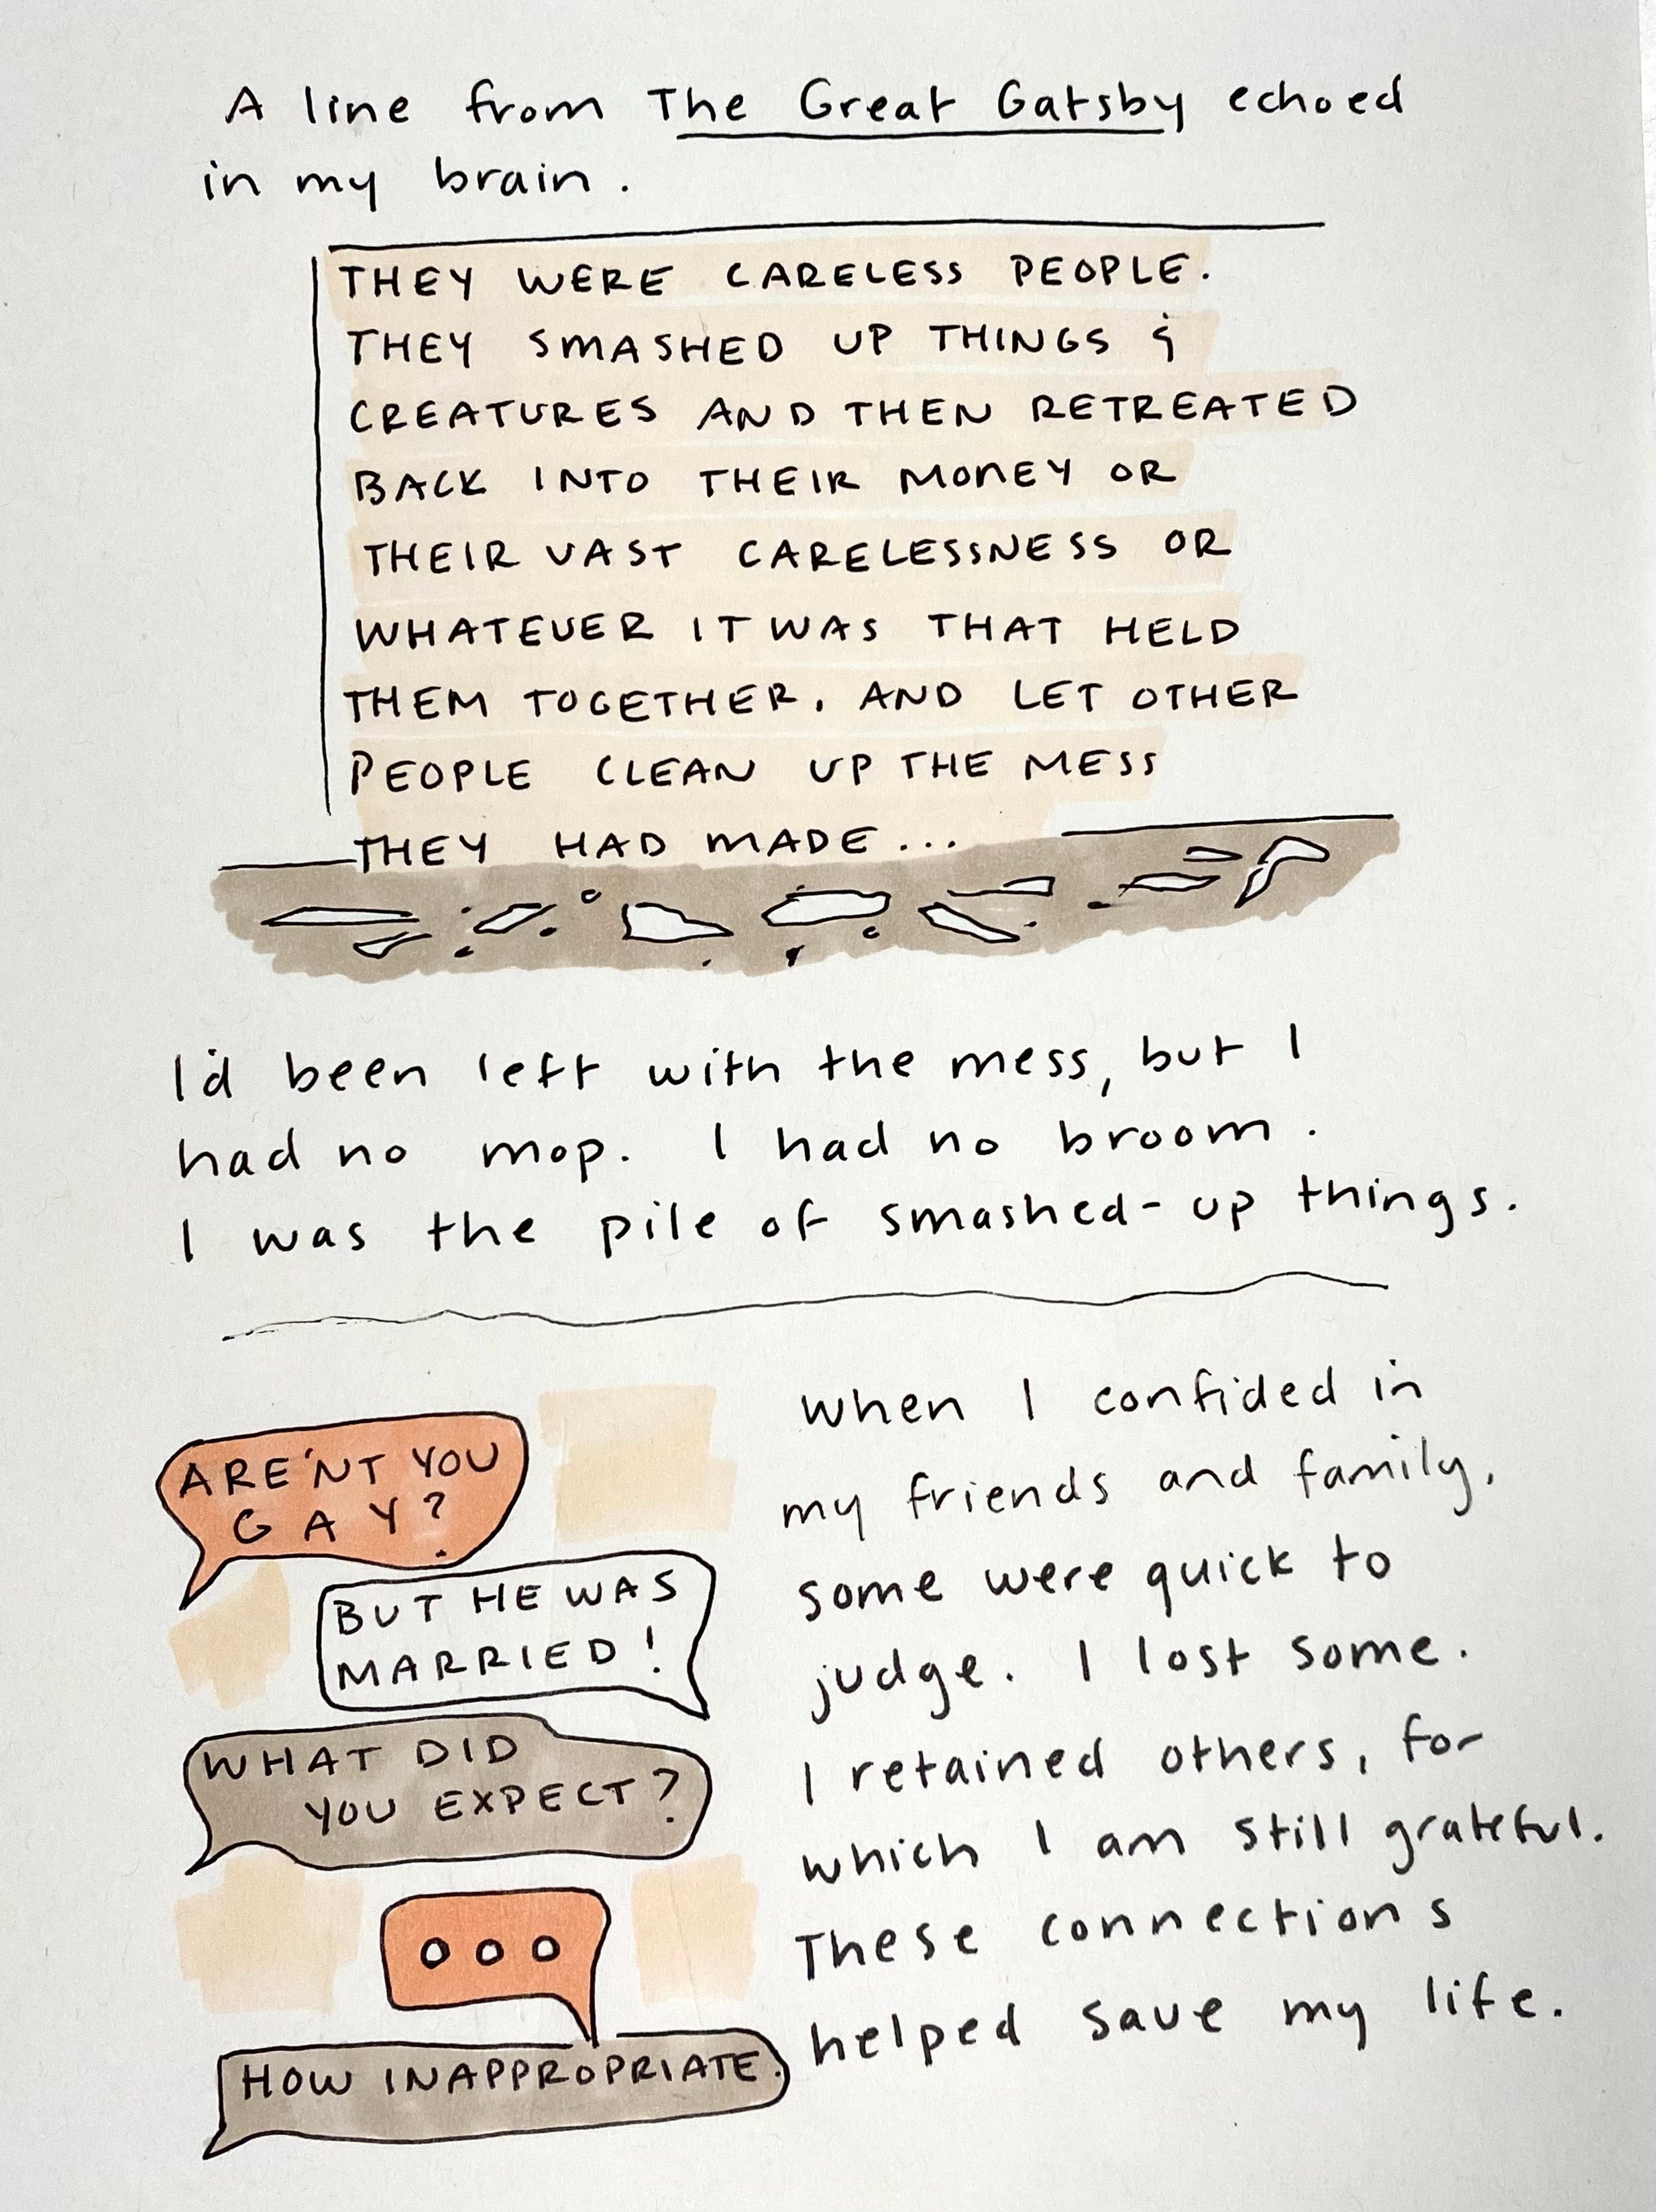 A line from The Great Gatsby echoed
in my brain.
THEY WERE CARELESS PEOPLE.
THEY SMASHED UP THINGS &
CREATURES AND THEN RETREATED
BACK INTO THEIR MONEY OR
THEIR VAST CARELESSNESS OR
WHATEVER IT WAS THAT HELD
THEM TOGETHER, AND LET OTHER
PEOPLE CLEAN UP THE MESS
THEY HAD MADE...
I'd been left with the mess, but I
had no mop. I had no broom.
I was the pile of smashed-up things.
ARE'NT YOU
GAY?
BUT HE WAS
MARRIED!
WHAT DID
YOU EXPECT?
HOW INAPPROPRIATE.
When I confided in
my friends and family,
some were quick to
judge. I lost some.
I retained others, for
which I am still grateful.
These connections
helped save my life.